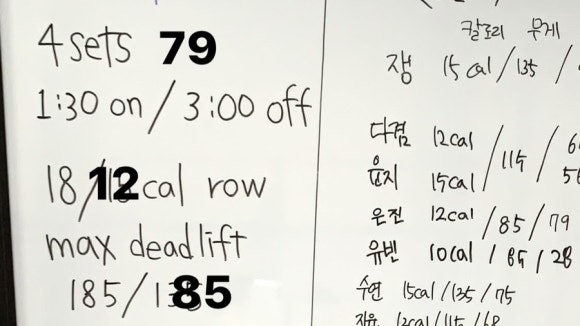 4 sets 79
1:30 on / 3:00 off
18/12cal row
max deadlift
185/1385
칼로리 무게
잼 15cal/135/
다겸 12cal
유지 15cal /115/
은진 12cal /85/79
유빈 10cal / 85 / 28
수연 15cal/135/75
지윤 12cal/115/68